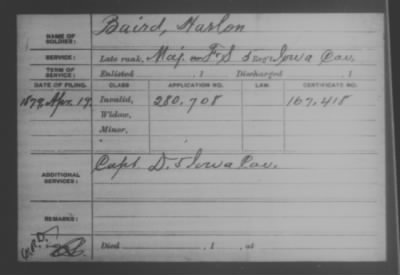 NAME OF SOLDIER: Baird, Harlon
SERVICE: Late rank, Maj F.S 5 Reg't Iowa Cav.
TERM OF SERVICE: Enlisted , 1 Discharged , 1
DATE OF FILING. CLASS APPLICATION NO. LAW. CERTIFICATE NO.
1879, Apr. 19. Invalid, 280,708 167,418
Widow,
Minor,
ADDITIONAL SERVICES: Capt D. 5 Iowa Cav.
REMARKS:
Died , 1 , at